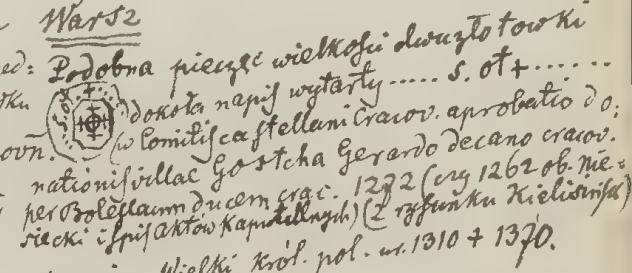 Warsz
ed: Podobna pieczęć wielkości dwuzłotowki
tku dokoła napis wytarty ..... s. ot + ......
(w Comitis castellani Cracov. aprobatio do:
ovn. nationis villae Gostcha Gerardo decano cracov.
per Boleslaum ducem crac. 1272 (czy 1262 ob. Nie=
siecki i spis aktów Kapitulnych) (z rysunku Kielisińsk)
Wielki Król. pol. ur. 1310 + 1370.